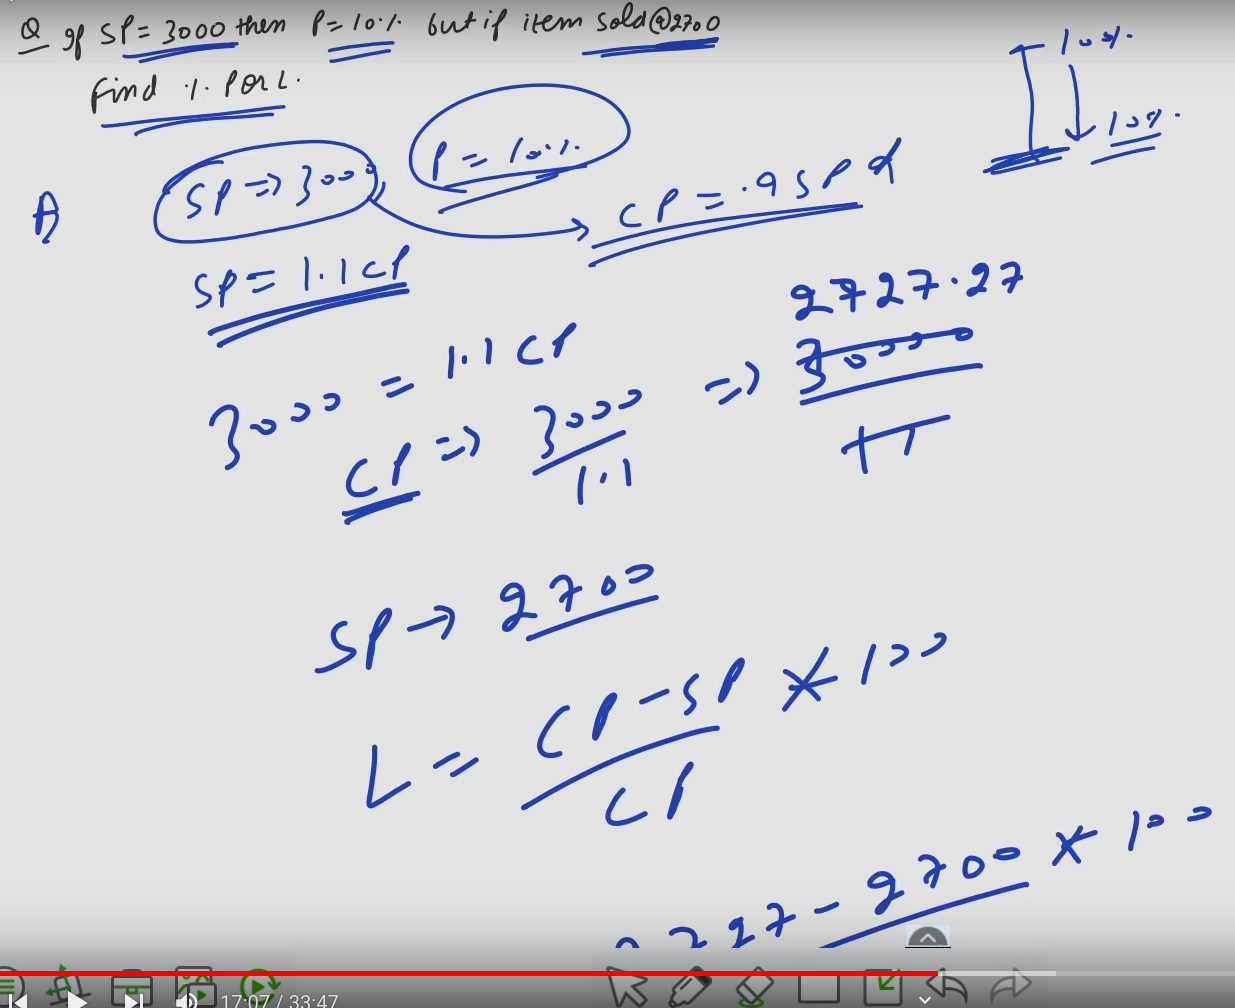 Q If SP = 3000 then P = 10% but if item sold @2700
Find % P or L.
100%
10%
A SP => 3000 P = 10%
CP = .9 SP
SP = 1.1 CP
3000 = 1.1 CP
CP => 3000 / 1.1 => 30000 / 11 2727.27
SP → 2700
L = CP - SP / CP * 100
2727 - 2700 * 100
17:07 / 33:47